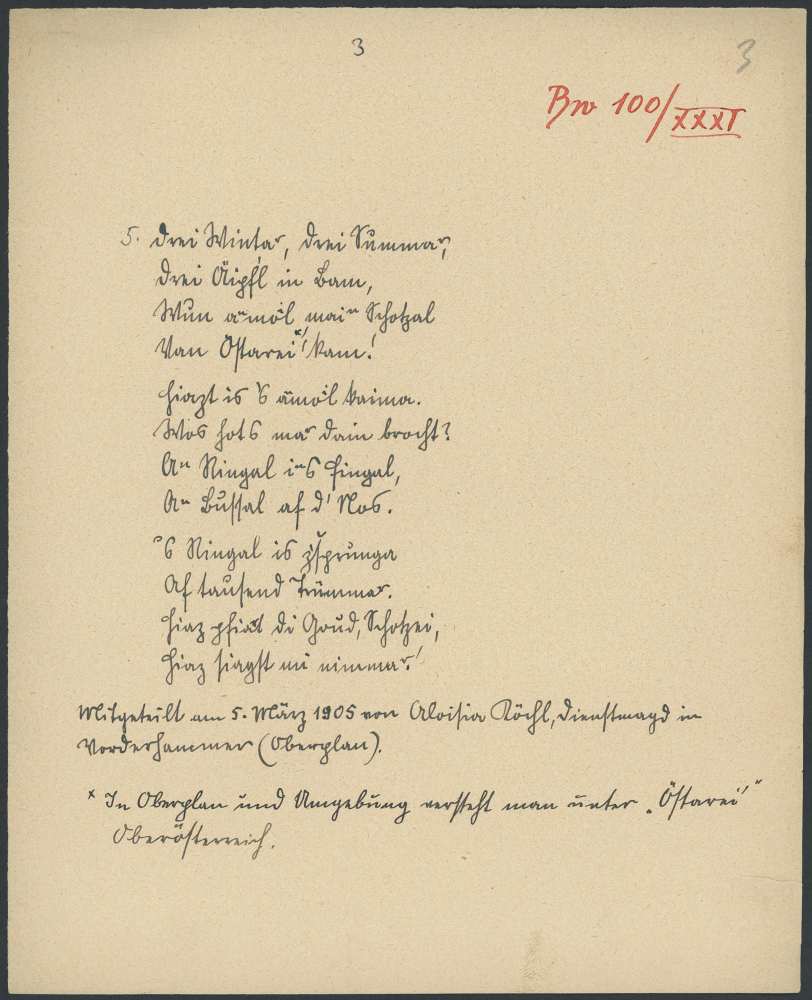 3
3
Bw 100/XXXI
5. Drei Winta^r, drei Summa^r,
Drei Äipfl in Bam,
Wun a^nmol mai^n Schotzal
Van Östarei*' kam!
Hiazt is 's amol kaima.
Wos hot's ma^r dain brocht?
A^n Ringal i^n's Fingal,
A^n Bussal af d' Nos.
's Ringal is zsprunga
Af tausend Trümma^r.
Hiaz pfiat di Goud, Schotzei,
Hiaz siagst mi nimma^r!
Mitgeteilt am 5. März 1905 von Aloisia Köchl, Dienstmagd in
Vorderhammer (Oberplan).
* In Oberplan und Umgebung versteht man unter „Östarei'"
Oberösterreich.